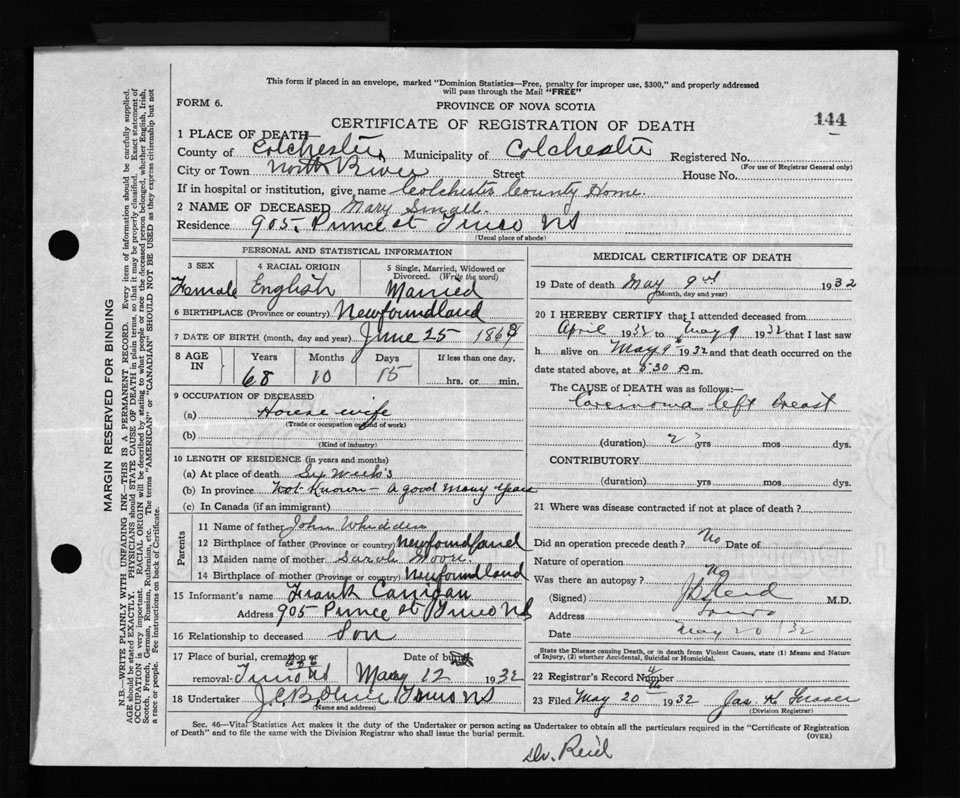 This form if placed in an envelope, marked "Dominion Statistics—Free, penalty for improper use, $300," and properly addressed
will pass through the Mail "FREE"
FORM 6.
PROVINCE OF NOVA SCOTIA
CERTIFICATE OF REGISTRATION OF DEATH
144
1 PLACE OF DEATH—
County of Colchester Municipality of Colchester Registered No.
(For use of Registrar General only)
City or Town North River Street House No.
If in hospital or institution, give name Colchester County Home.
2 NAME OF DECEASED Mary Small.
Residence 905. Prince st Truro NS
(Usual place of abode)
PERSONAL AND STATISTICAL INFORMATION
3 SEX 4 RACIAL ORIGIN 5 Single, Married, Widowed or
Divorced. (Write the word)
Female English Married
6 BIRTHPLACE (Province or country) Newfoundland
7 DATE OF BIRTH (month, day and year) June 25
8 AGE IN Years Months Days If less than one day,
68 10 15 hrs. or min.
9 OCCUPATION OF DECEASED
(a) House wife
(Trade or occupation or kind of work)
(b)
(Kind of industry)
10 LENGTH OF RESIDENCE (in years and months)
(a) At place of death Six Weeks
(b) In province Not Known – a good many years
(c) In Canada (if an immigrant)
Parents
11 Name of father John
12 Birthplace of father (Province or country) Newfoundland
13 Maiden name of mother Sarah
14 Birthplace of mother (Province or country) Newfoundland
15 Informant's name Frank
Address 905 Prince st Truro NS
16 Relationship to deceased Son
17 Place of burial, cremation or Date of burial
removal Truro NS May 12 1932
18 Undertaker Truro NS
(Name and address)
MEDICAL CERTIFICATE OF DEATH
19 Date of death May 9th 1932
(Month, day and year)
20 I HEREBY CERTIFY that I attended deceased from
April 1932 to May 9 1932 that I last saw
h alive on May 9th 1932 and that death occurred on the
date stated above, at 5-30 P.m.
The CAUSE of DEATH was as follows:—
Carcinoma left Breast
(duration) 2 yrs mos dys.
CONTRIBUTORY
(duration) yrs mos dys.
21 Where was disease contracted if not at place of death?
Did an operation precede death? No Date of
Nature of operation
Was there an autopsy? No
(Signed) Reid M.D.
Address Truro
Date May 20 '32
State the Disease causing Death, or in death from Violent Causes, state (1) Means and Nature
of Injury, (2) whether Accidental, Suicidal or Homicidal.
22 Registrar's Record Number
23 Filed May 20th 1932 Jas. K Fraser
(Division Registrar)
Sec. 46—Vital Statistics Act makes it the duty of the Undertaker or person acting as Undertaker to obtain all the particulars required in the "Certificate of Registration
of Death" and to file the same with the Division Registrar who shall issue the burial permit.
(OVER)
Dr. Reid
MARGIN RESERVED FOR BINDING
N.B.—WRITE PLAINLY WITH UNFADING INK—THIS IS A PERMANENT RECORD. Every item of information should be carefully supplied.
AGE should be stated EXACTLY. PHYSICIANS should STATE CAUSE OF DEATH in plain terms, so that it may be properly classified. Exact statement of
OCCUPATION is very important. RACIAL ORIGIN will be described by stating to what people or race the deceased person belonged, whether English, Irish,
Scotch, French, German, Russian, Ruthenian, etc. The terms "AMERICAN" or "CANADIAN" SHOULD NOT BE USED as they express citizenship but not
a race or people. See instructions on back of Certificate.